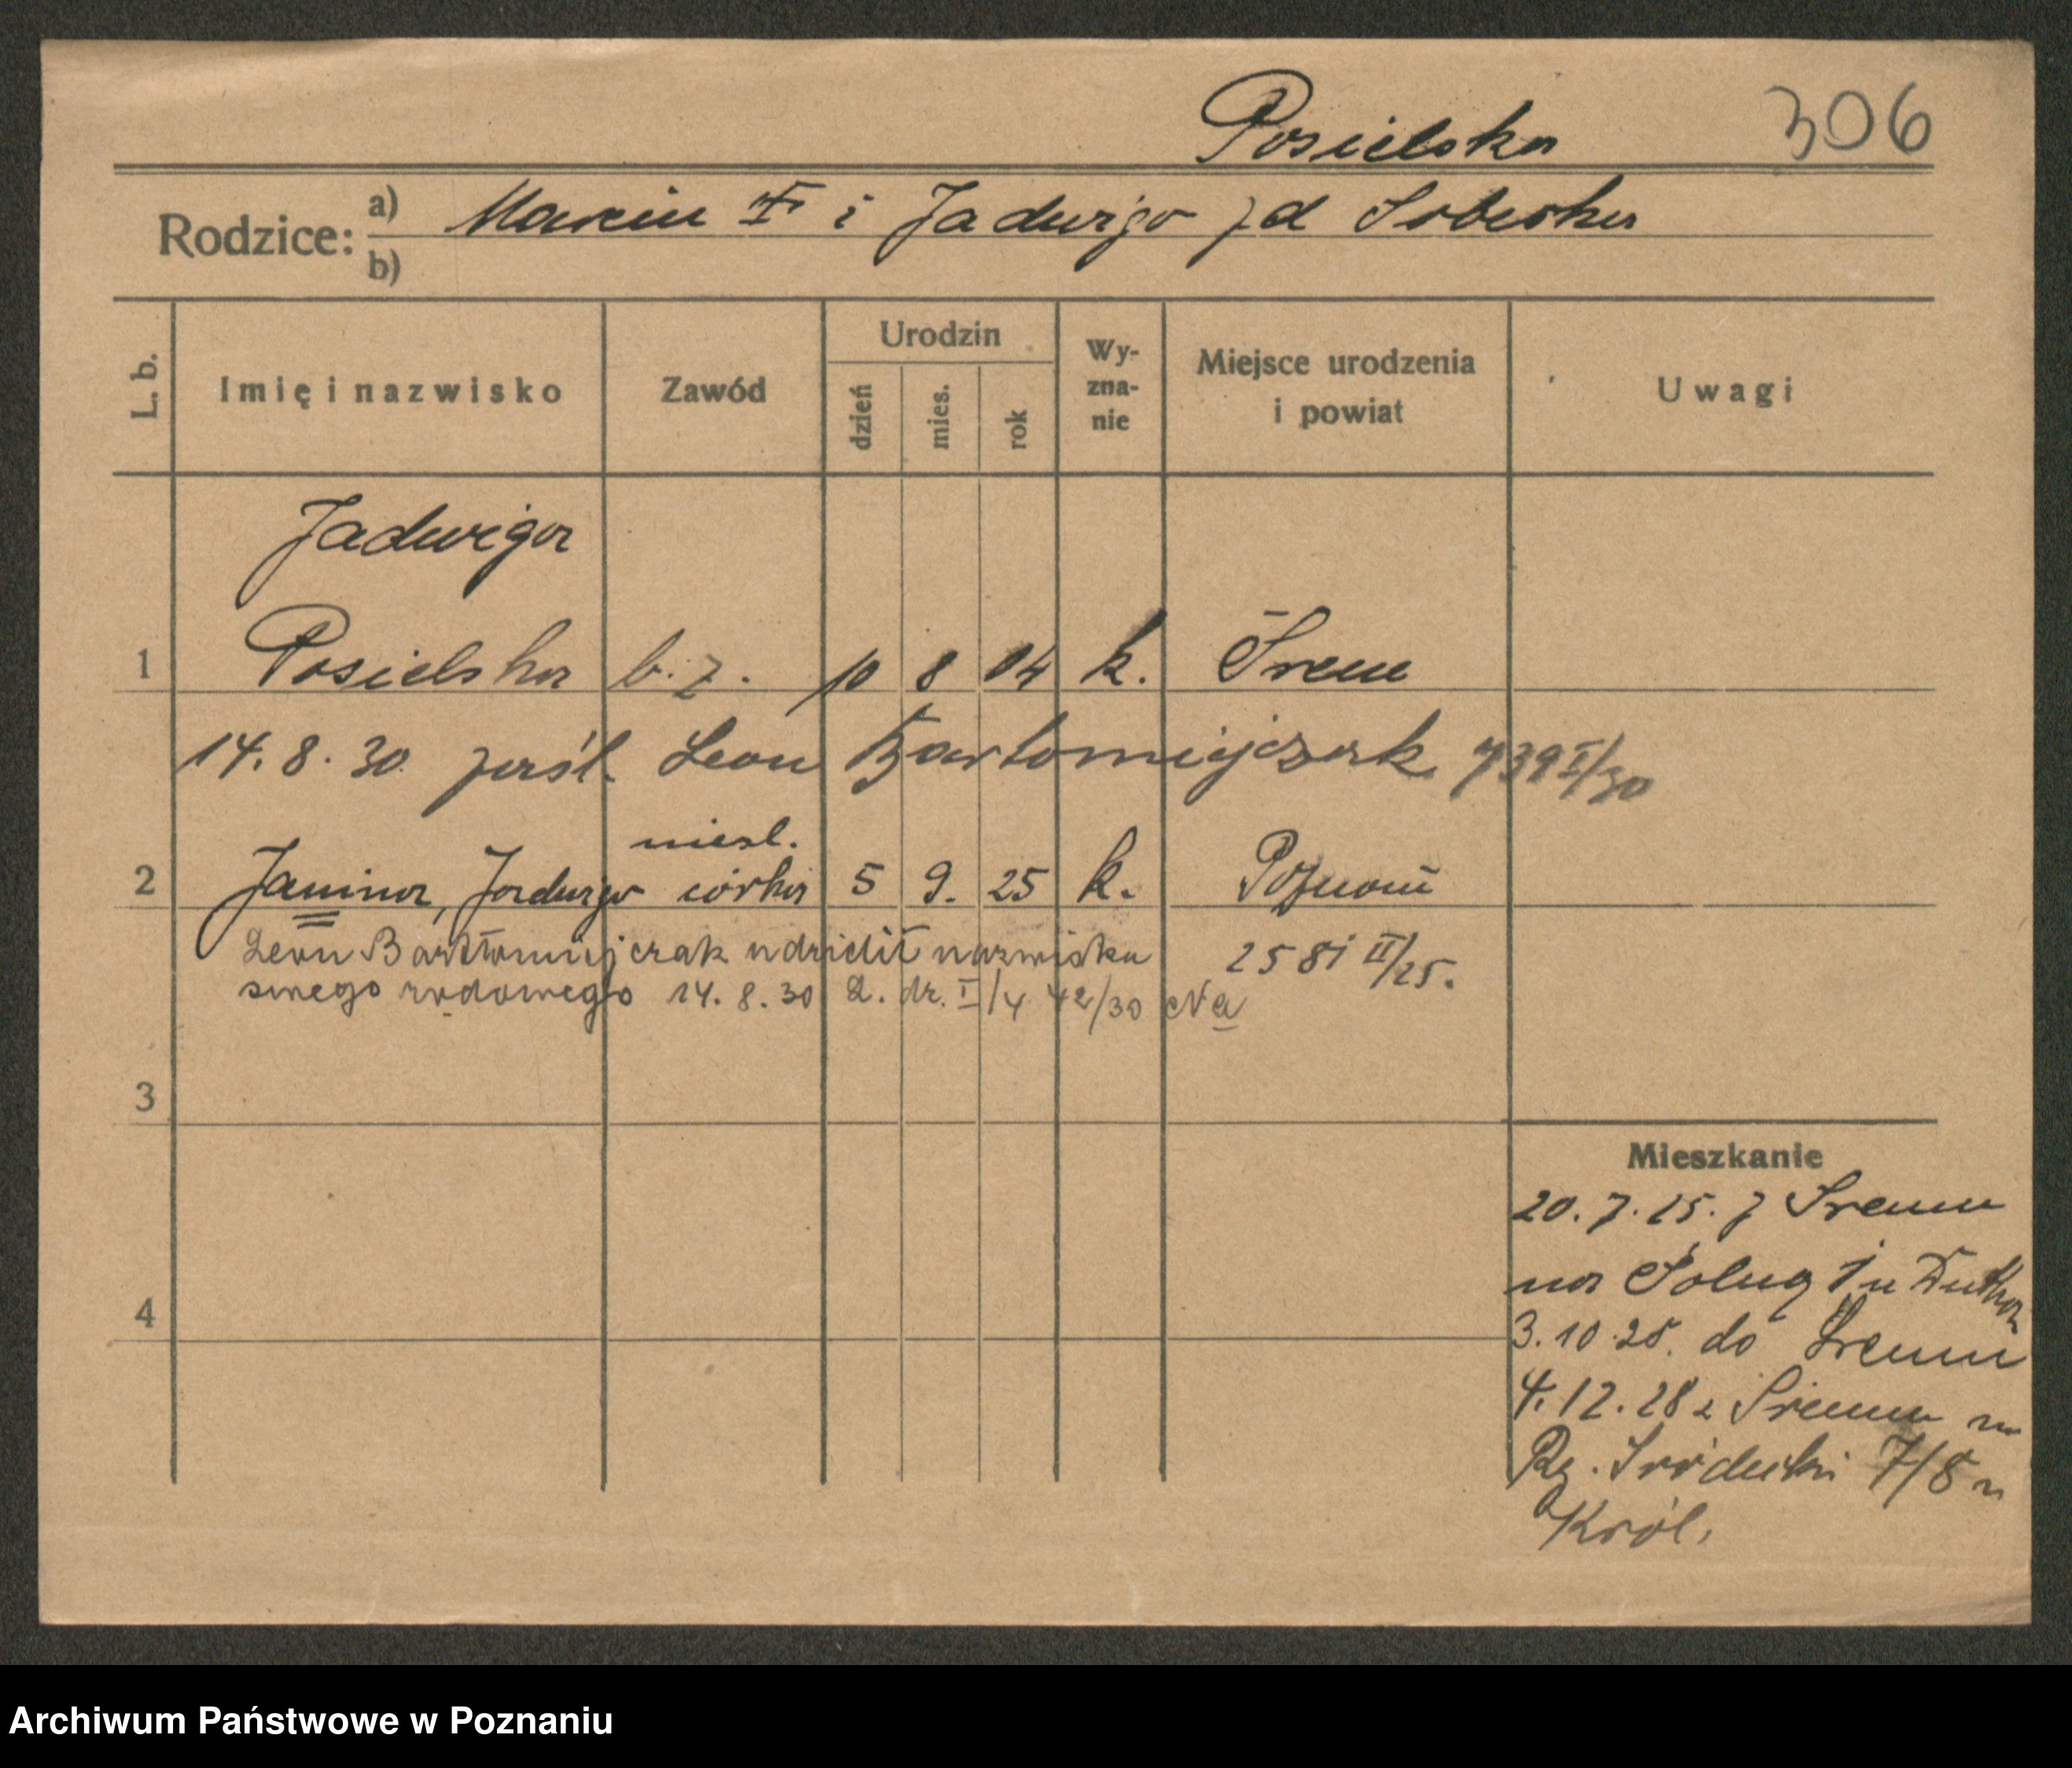 Posielska 306
Rodzice: a) Marcin † i Jadwiga zd Sobeska
b)
L. b. Imię i nazwisko Zawód Urodzin dzień mies. rok Wyzna-nie Miejsce urodzenia i powiat Uwagi
Jadwiga
1 Posielska b. z. 10 8 04 k. Śrem
14. 8. 30 zaśl. Leon Bartomiejczak 739 I/30
nieśl.
2 Janina, Jadwiga córka 5 9. 25 k. Poznań
Leon Bartłomiejczak udzielił nazwiska 2581 II/25.
swego rodowego 14. 8. 30 dr. I/4 42/30
3
Mieszkanie
20. 7. 25. z Śremu
na 1 u
4
3. 10. 25. do Śremu
4. 12. 28 z Śremu na
Śródecki 7/8 u
Król.
Archiwum Państwowe w Poznaniu